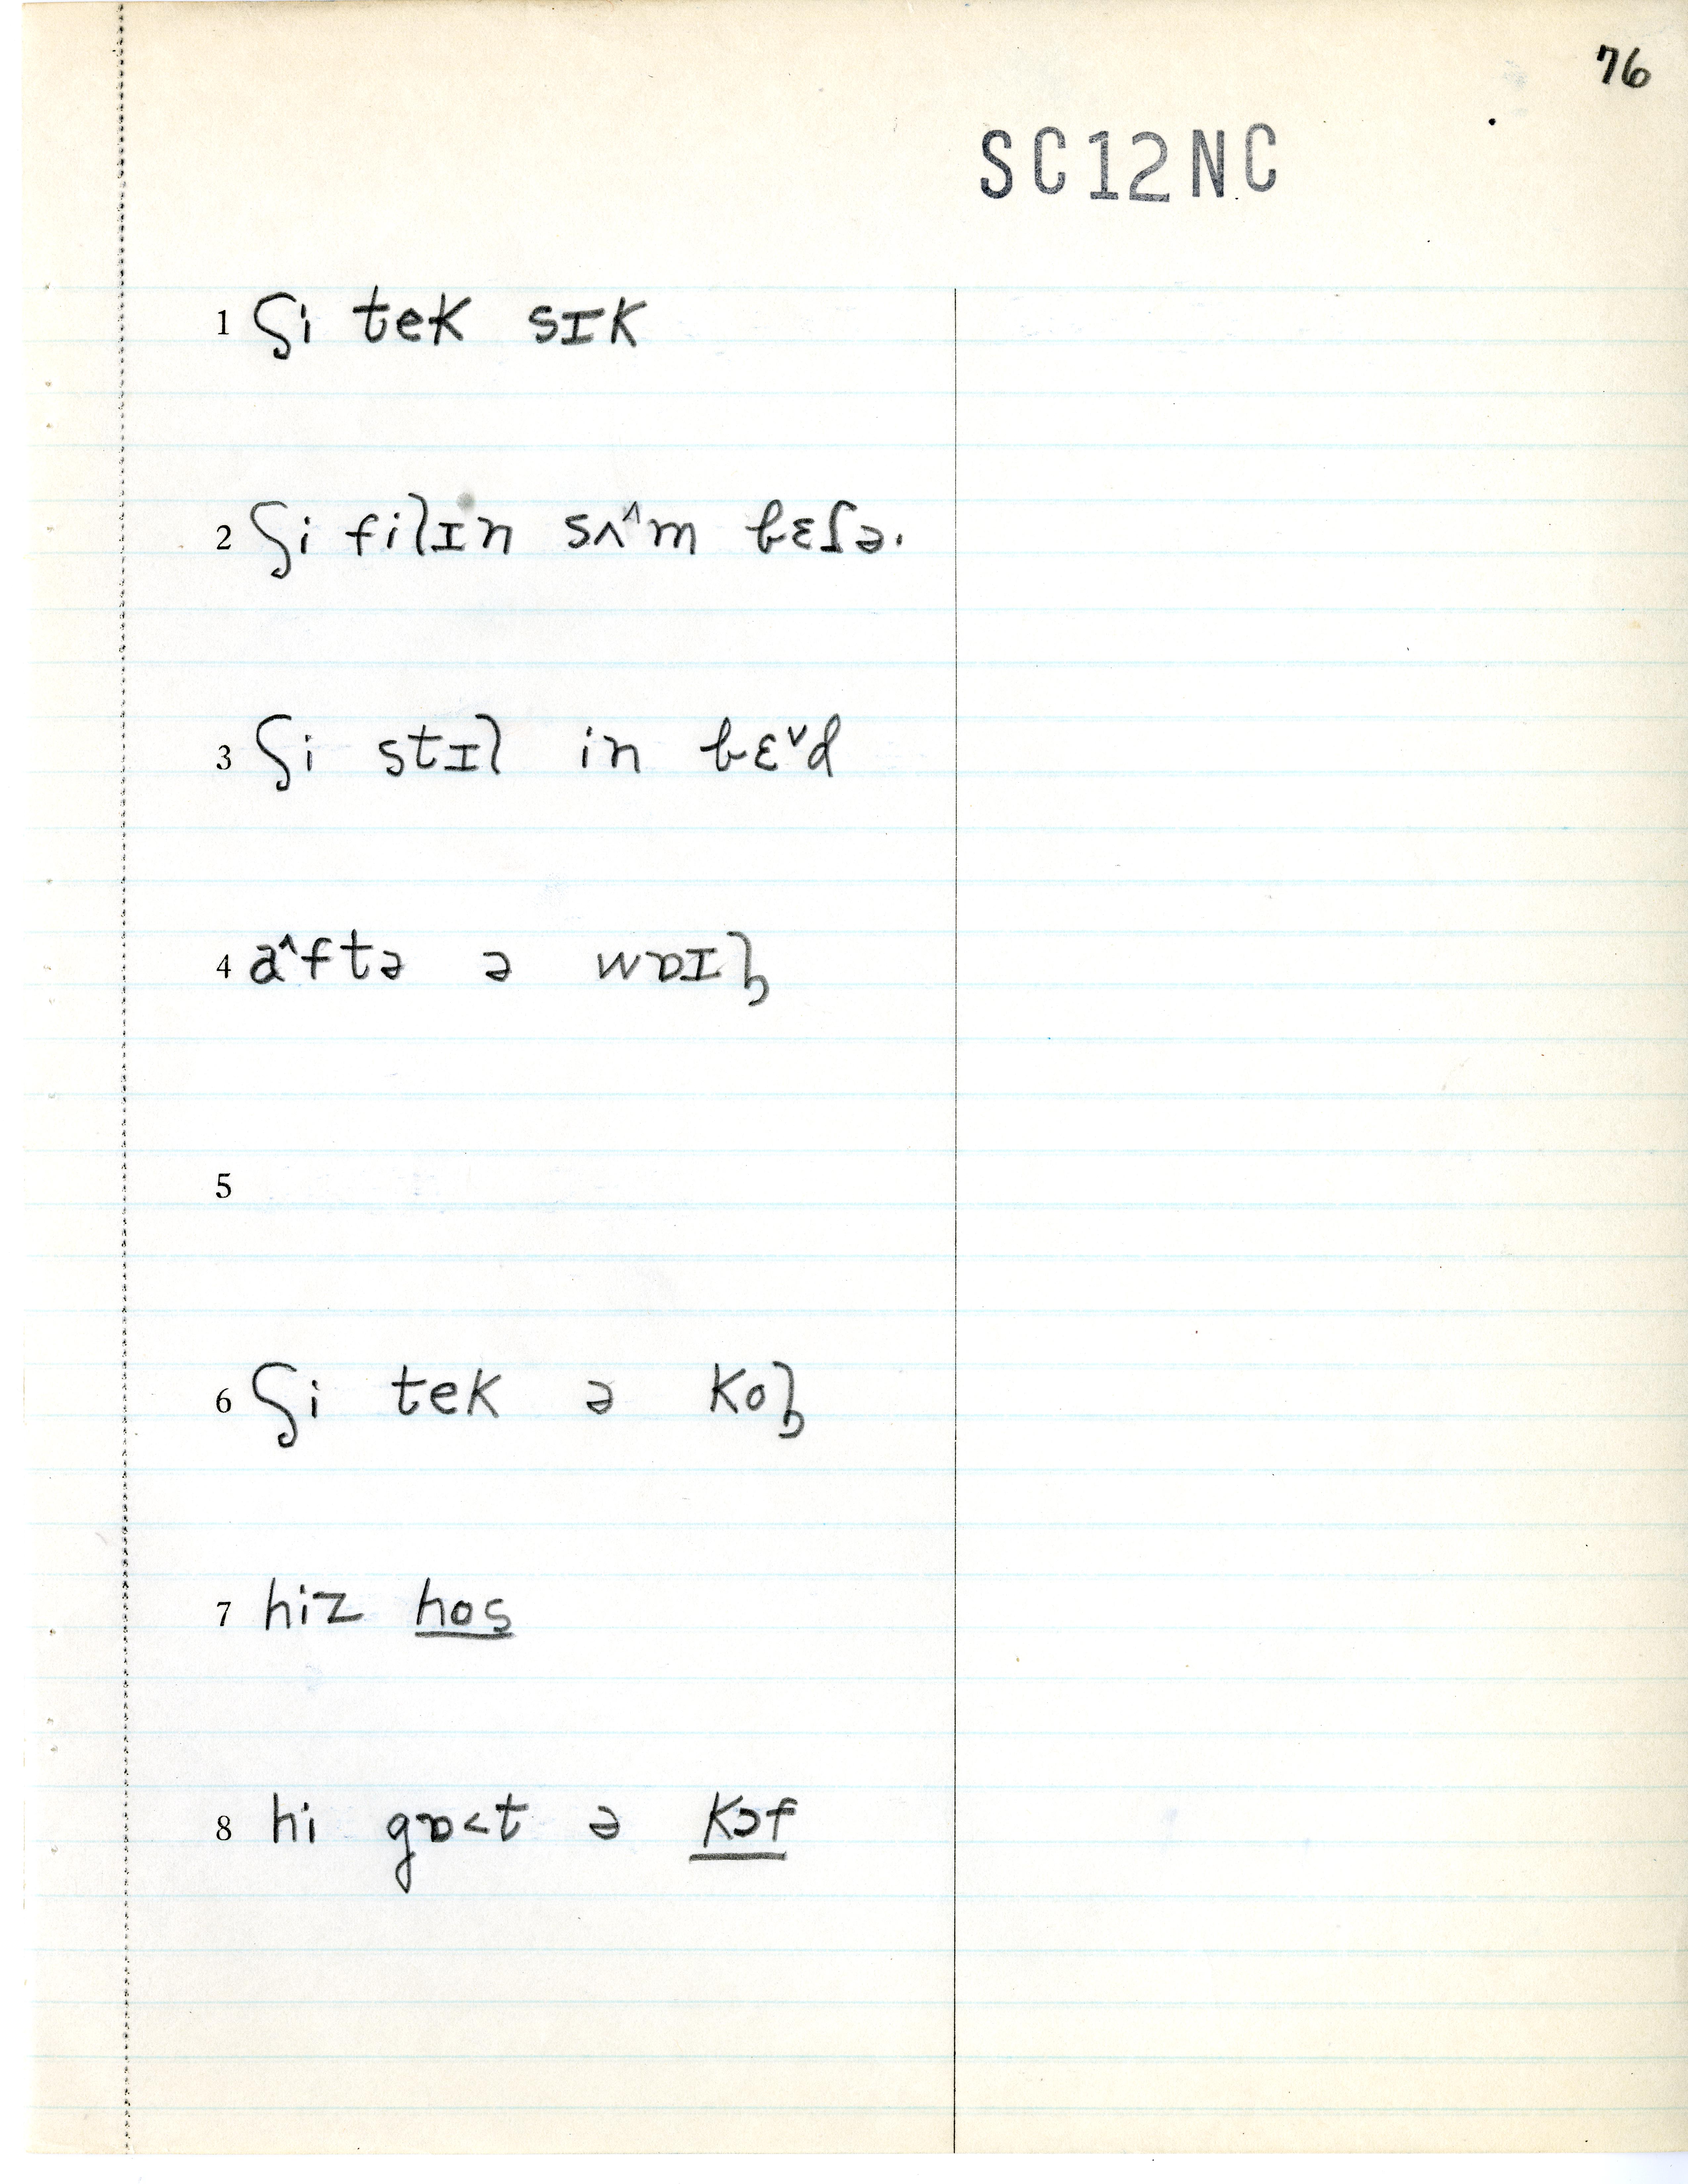 76
SC12NC
1 ʆi tek sɪk
2 ʆi filɪn sʌ˄m bɛɾə.
3 ʆi stɪl in bɛ˅d
4 a˄ftə ə wɒɪȴ
5
6 ʆi tek ə koȴ
7 hiz hos
8 hi gɒ˂t ə kɔf